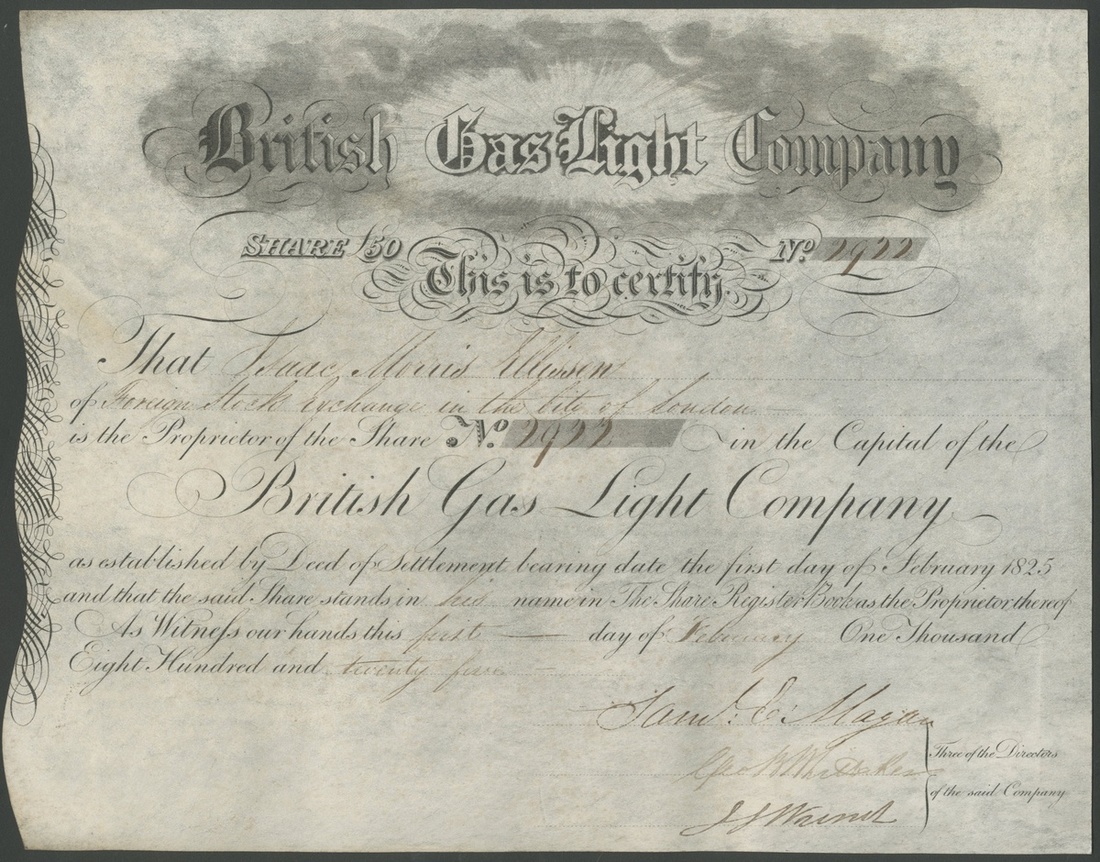 British Gas Light Company
SHARE £50 No. 2922
This is to certify
That Isaac Morris Ellissen
of Foreign Stock Exchange in the City of London
is the Proprietor of the Share No. 2922 in the Capital of the
British Gas Light Company
as established by Deed of Settlement bearing date the first day of February 1825
and that the said Share stands in his name in The Share Register Book as the Proprietor thereof
As Witness our hands this first day of February One Thousand
Eight Hundred and twenty five
Saml. E. Magan
Geo B Whittaker
Three of the Directors
of the said Company